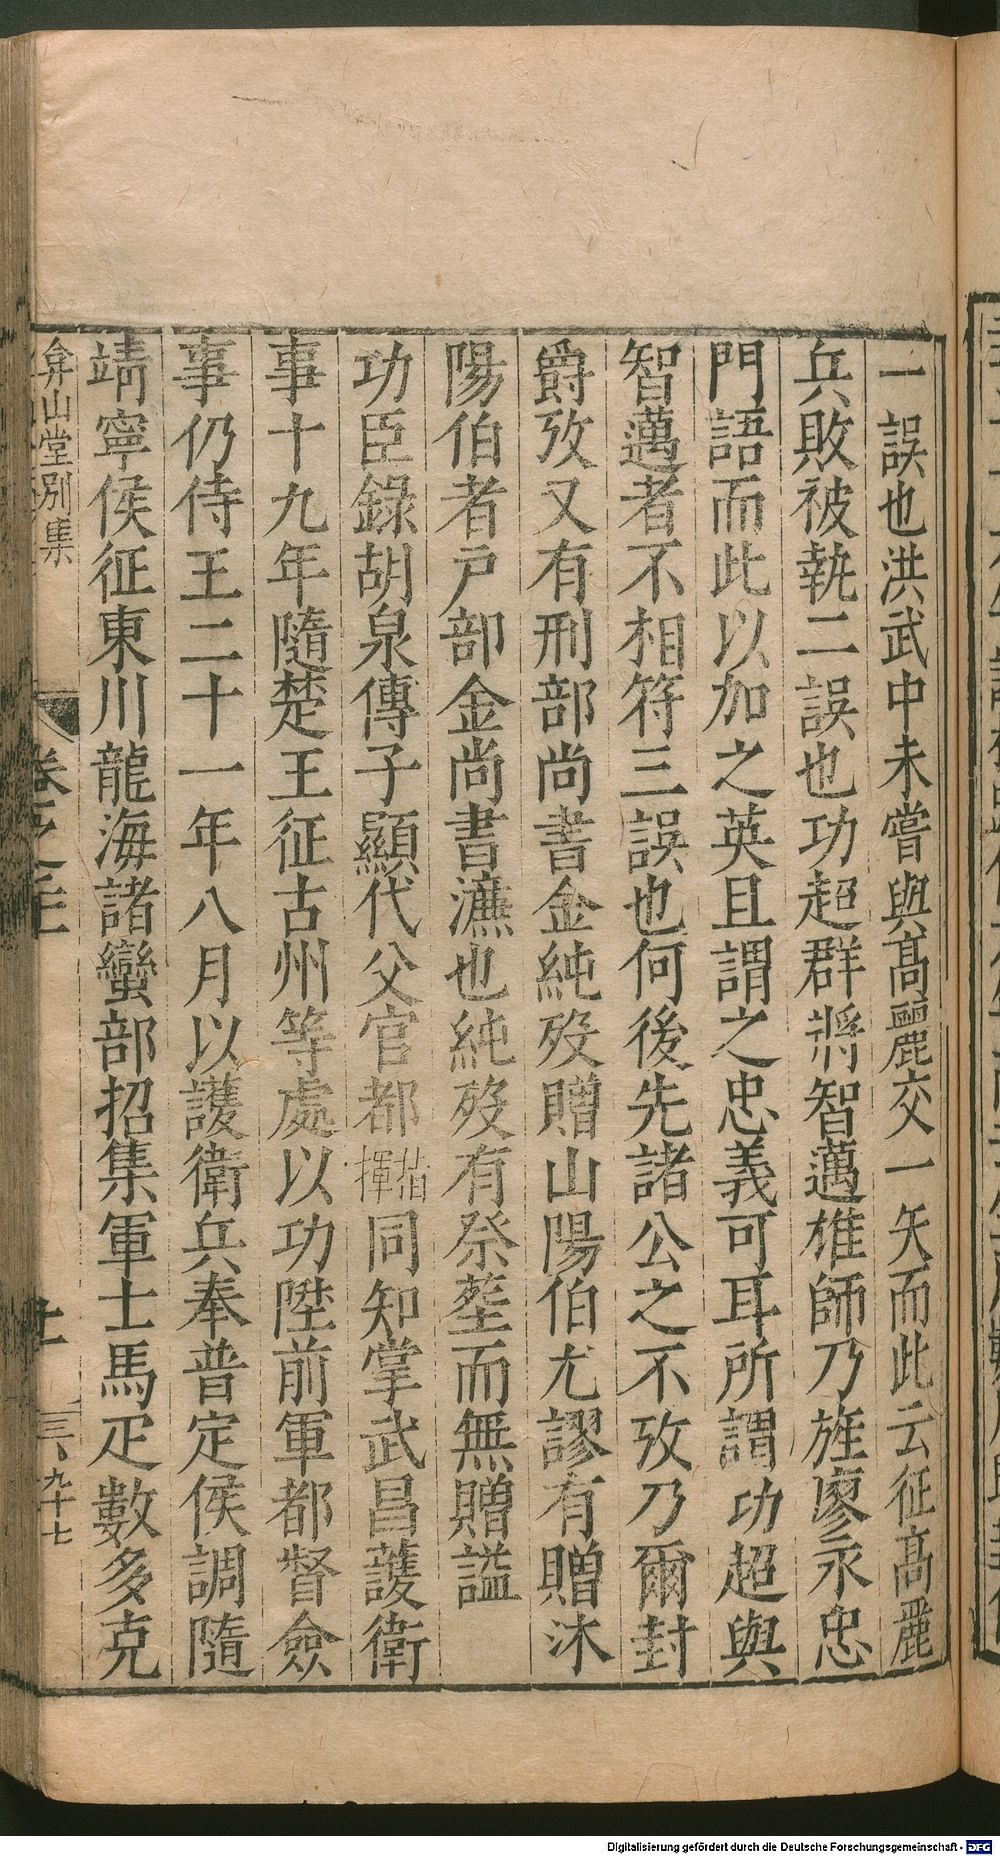 一誤也洪武中未嘗與高麗交一矢而此云征高麗
兵敗被執二誤也功超群將智邁雄師乃旌廖永忠
門語而此以加之英且謂之忠義可耳所謂功超與
智邁者不相符三誤也何後先諸公之不攷乃爾封
爵攷又有刑部尚書金純歿贈山陽伯尤謬有贈沐
陽伯者戶部金尚書濂也純歿有祭塟而無贈謚
功臣錄胡泉傳子顯代父官都指揮同知掌武昌護衛
事十九年隨楚王征古州等處以功陞前軍都督僉
事仍侍王二十一年八月以護衛兵奉普定侯調隨
靖寧侯征東川龍海諸蠻部招集軍士馬疋數多克
弇山堂別集
卷之
十
三、九十七
Digitalisierung gefördert durch die Deutsche Forschungsgemeinschaft - DFG